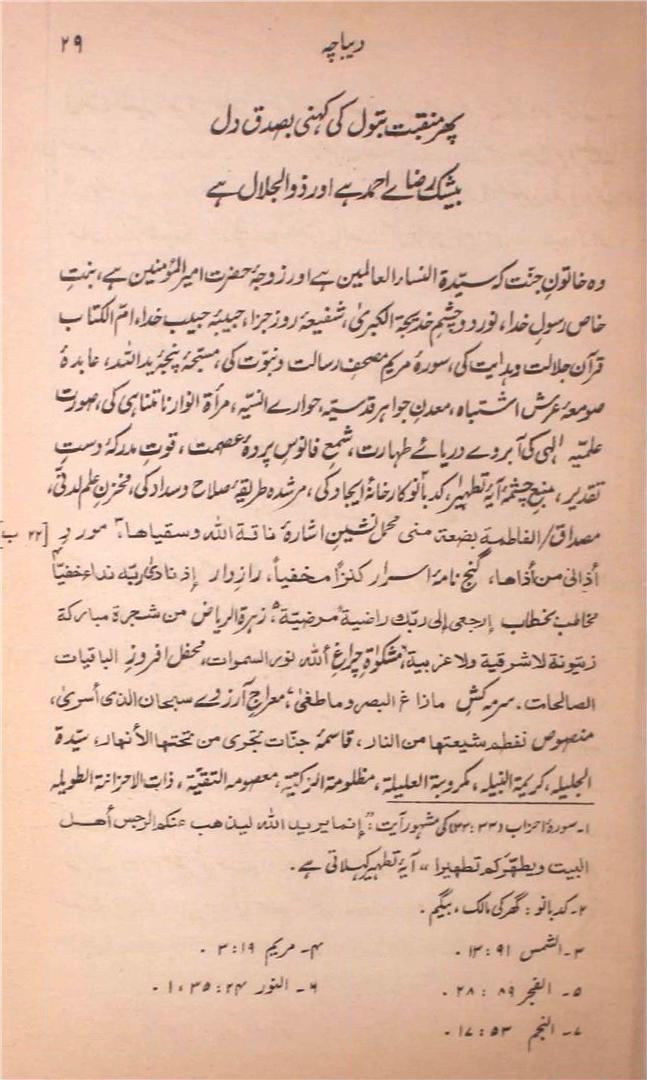 دیباچہ ۲۹
پھر منقبت بتول کی کہنی بصدق دل
بیشک رضاے احمد ہے اور ذوالجلال ہے
وہ خاتونِ جنّت کہ سیّدۃ النساء العالمین ہے اور زوجۂ حضرت امیر المؤمنین ہے، بنتِ
خاص رسولِ خدا، نورِ دو چشمِ خدیجۃ الکبریٰ، شفیعۂ روزِ جزا، حبیبۂ حبیب خدا، امّ الکتاب
قرآن جلالت و ہدایت کی، سورۂ مریم مصحفِ رسالت و نبوّت کی، مسبّحۂ پنجۂ ید اللہ، عابدۂ
صومعۂ عرش اشتباہ، معدنِ جواہر قدسیّہ، حوارے انسیّہ، مرآۃ انوار نا متناہی کی، صورت
علمیّہ الٰہی کی آبروے دریائے طہارت، شمعِ فانوسِ پردۂ عصمت، قوتِ مدرکۂ دستِ
تقدیر، منبعِ چشمۂ آیۂ تطہیر۱، کدبانو۲ کارخانۂ ایجاد کی، مرشدہ طریقۂ صلاح و سداد کی، مخزنِ علم لدنّی،
مصداق/الفاطمة بضعة منی محمل نشینِ اشارۂ ناقة الله وسقیاها۳، موردِ [۲۲ ب]
أذانی من أذاها، گنج نامۂ اسرار کنزاً مخفیاً، رازوار إذ نادیٰ ربّه نداءً خفیّاً۴
مخاطب بخطاب إرجعی إلی ربّك راضیة مرضیّة۵، زهرة الریاض من شجرة مبارکة
زیتونة لا شرقیة ولا غربیة۶، مشکوٰۃِ چراغِ الله نور السموات، محفل افروزِ الباقیات
الصالحات، سرمہ کشِ ماذاغ البصر وما طغیٰ۷، معراجِ آرزوے سبحان الذی أسریٰ،
منصوص تفطم شیعتها من النار، قاسمۂ جنّات تجری من تحتها الأنهار، سیّدة
الجلیلہ، کریمۃ النبیلہ، مکروبۃ العلیلۃ، مظلومۃ الزکیّہ، معصومہ التقیّۃ، ذات الاحزانۃ الطویلہ
۱۔ سورۂ احزاب (۳۳:۳۳) کی مشہور آیت: "إنما یرید الله لیذهب عنکم الرجس أهل
البیت ویطهّرکم تطهیرا" آیۂ تطہیر کہلاتی ہے۔
۲۔ کدبانو: گھر کی مالک، بیگم۔
۳۔ الشمس ۹۱:۱۳۔ ۴۔ مریم ۱۹:۳۔
۵۔ الفجر ۸۹:۲۸۔ ۶۔ النور ۲۴:۳۵،۱۔
۷۔ النجم ۵۳:۱۷۔